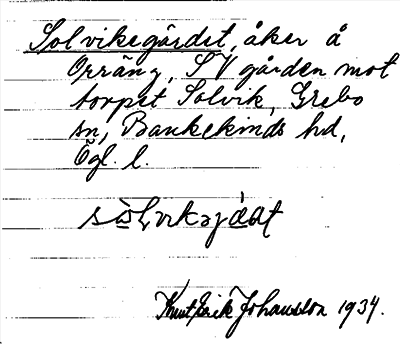 Solviksgärdet, åker å
Orräng, SV gården mot
torpet Solvik, Grebo
sn, Bankekinds hd,
Ögl. l.
Knut Erik Johansson 1934.